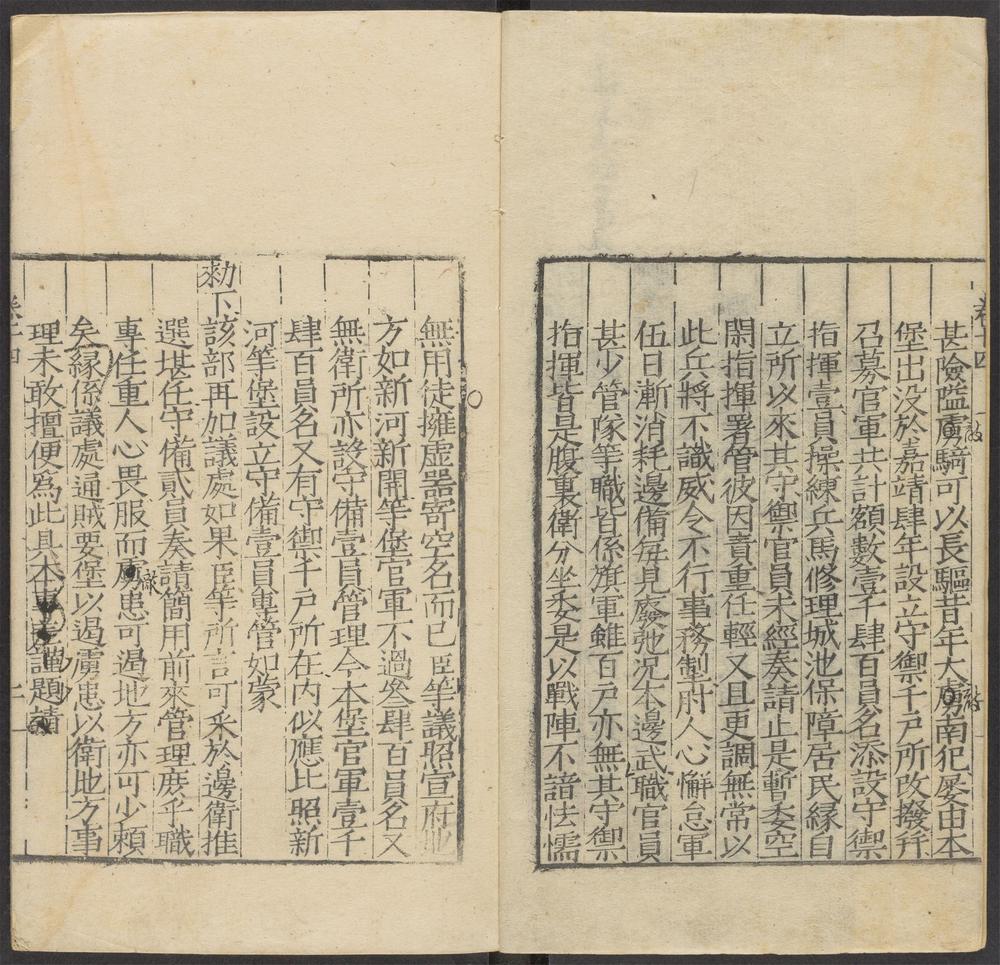 卷十四
甚險隘虜騎可以長驅昔年大虜南犯屡由本
敵
敵
堡出没於嘉靖肆年設立守禦千戶所改撥幷
召募官軍共計額數壹千肆百員名添設守禦
指揮壹員操練兵馬修理城池保障居民緣自
立所以來其守禦官員未經奏請止是暫委空
閑指揮署管彼因責重任輕又且更調無常以
此兵將不識威令不行事務製肘人心懈怠軍
伍日漸消耗邊備每見廢弛况本邊武職官員
甚少管隊等職皆係旗軍雖百戶亦無其守禦
指揮皆是腹裏衛分坐委是以戰陣不諳怯懦
無用徒擁虛器寄空名而已臣等議照宣府地
方如新河新開等堡官軍不過叄肆百員名又
無衛所亦設守備壹員管理今本堡官軍壹千
肆百員名又有守禦千戶所在內似應比照新
河等堡設立守備壹員專管如蒙
勑下該部再加議處如果臣等所言可采於邊衛推
選堪任守備貳員奏請簡用前來管理庶乎職
專任重人心畏服而虜患可遏地方亦可少賴
敵
矣緣係議處通賊要堡以遏虜患以衛地方事
理未敢擅便爲此具本謹題請
卷十四